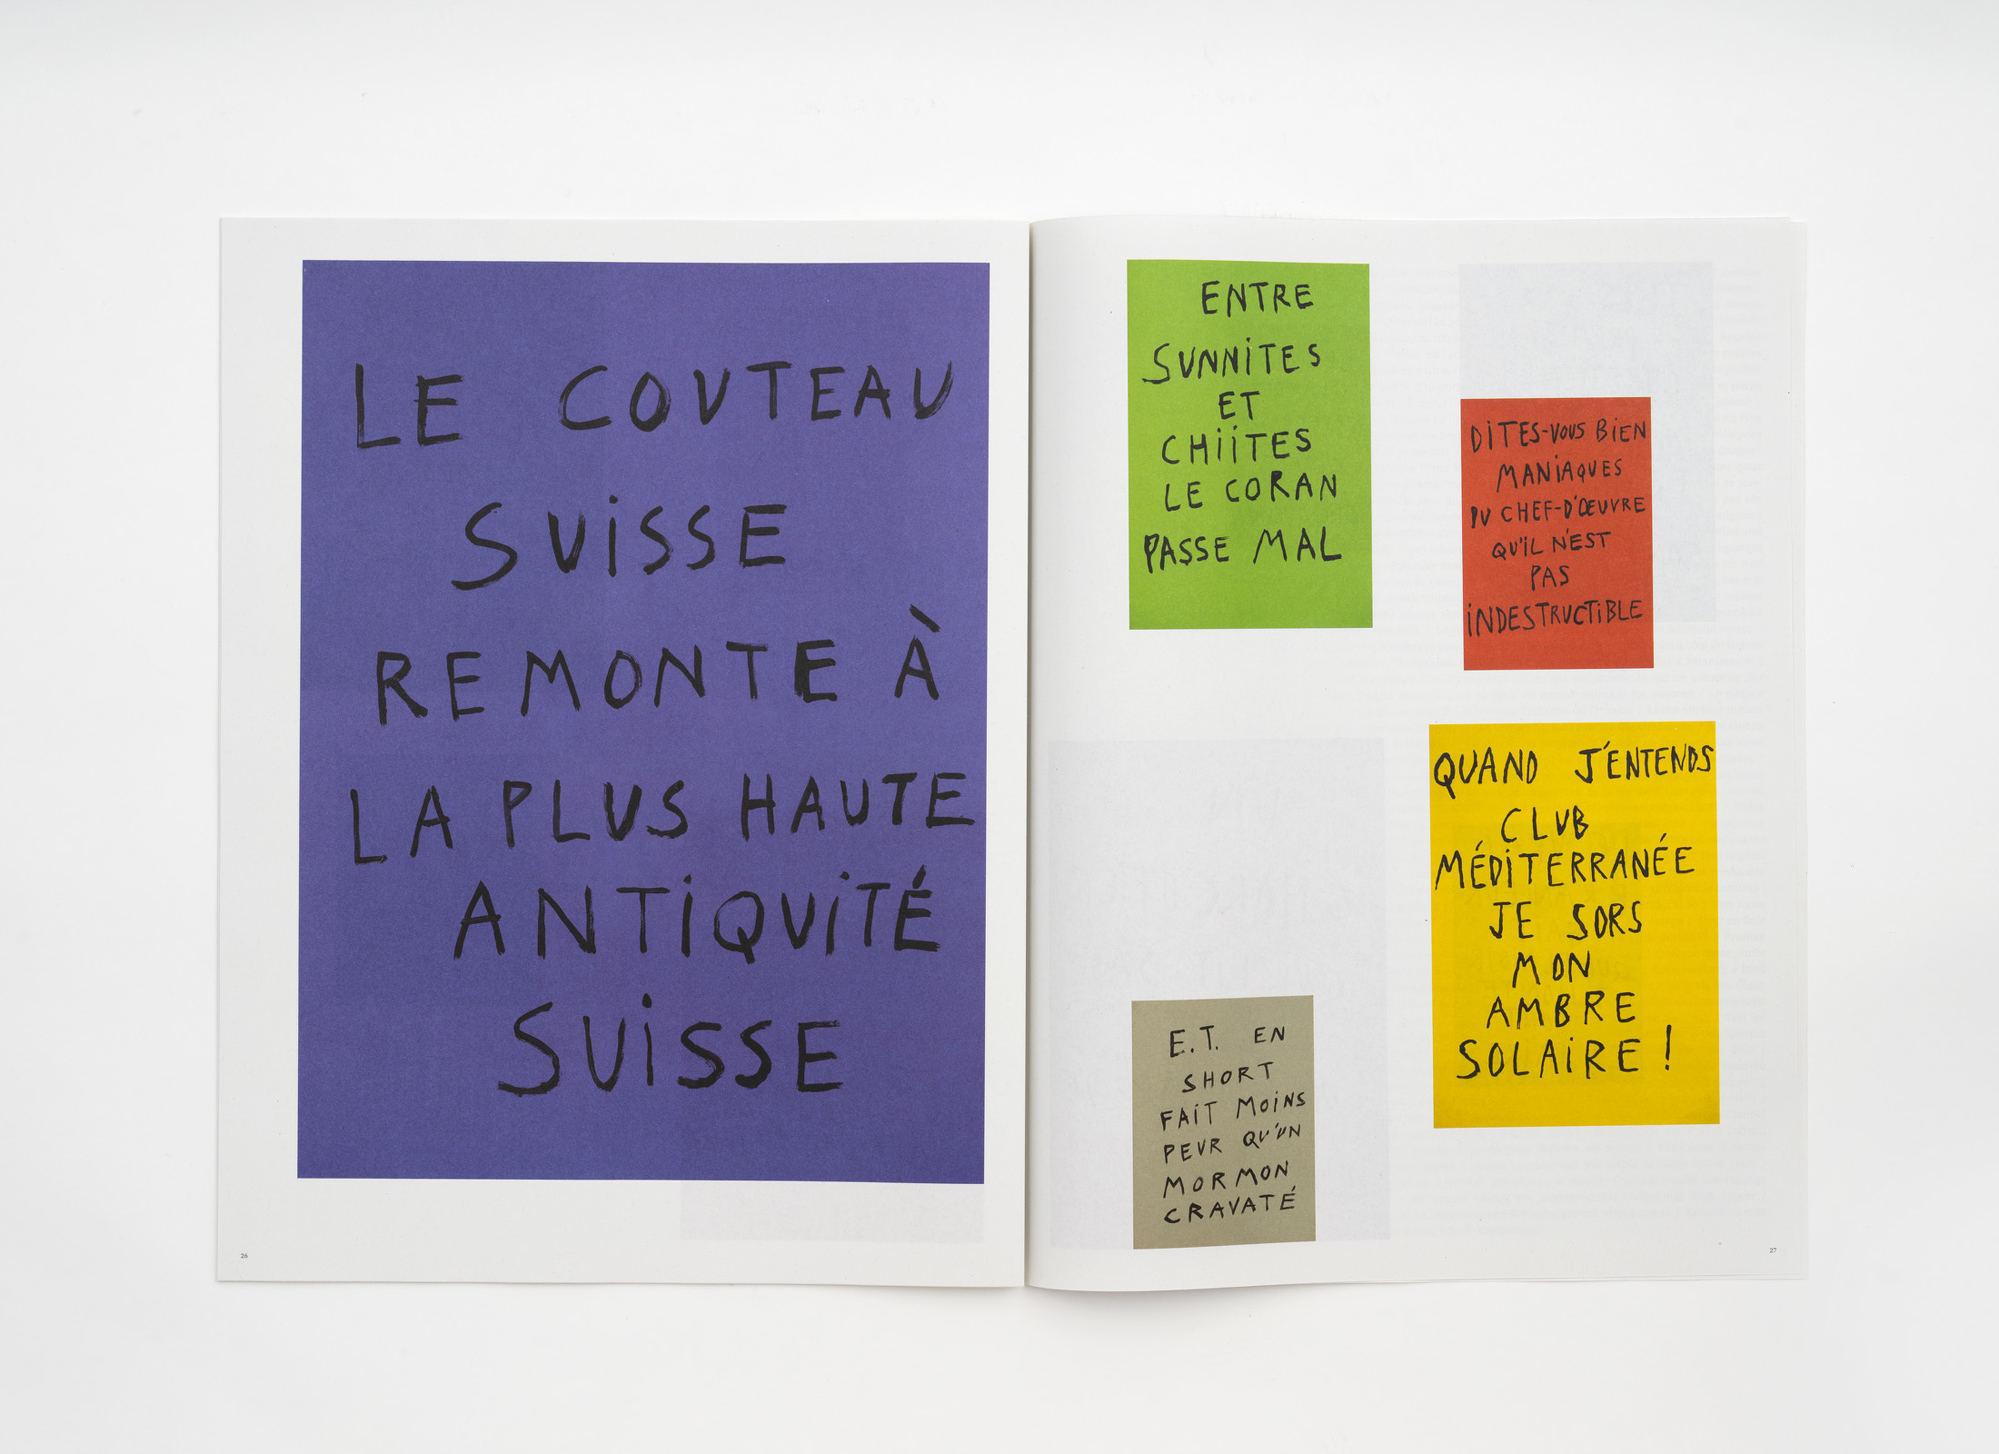 LE COUTEAU
SUiSSE
REMONTE À
LA PLUS HAUTE
ANTiQUiTÉ
SUiSSE
26
ENTRE
SUNNiTES
ET
CHiiTES
LE CORAN
PASSE MAL
DiTES-VOUS BiEN
MANiAQUES
DU CHEF-D'ŒUVRE
QU'iL N'EST
PAS
iNDESTRUCTiBLE
E.T. EN
SHORT
FAiT MOiNS
PEUR QU'UN
MORMON
CRAVATÉ
QUAND J'ENTENDS
CLUB
MÉDiTERRANÉE
JE SORS
MON
AMBRE
SOLAiRE !
27